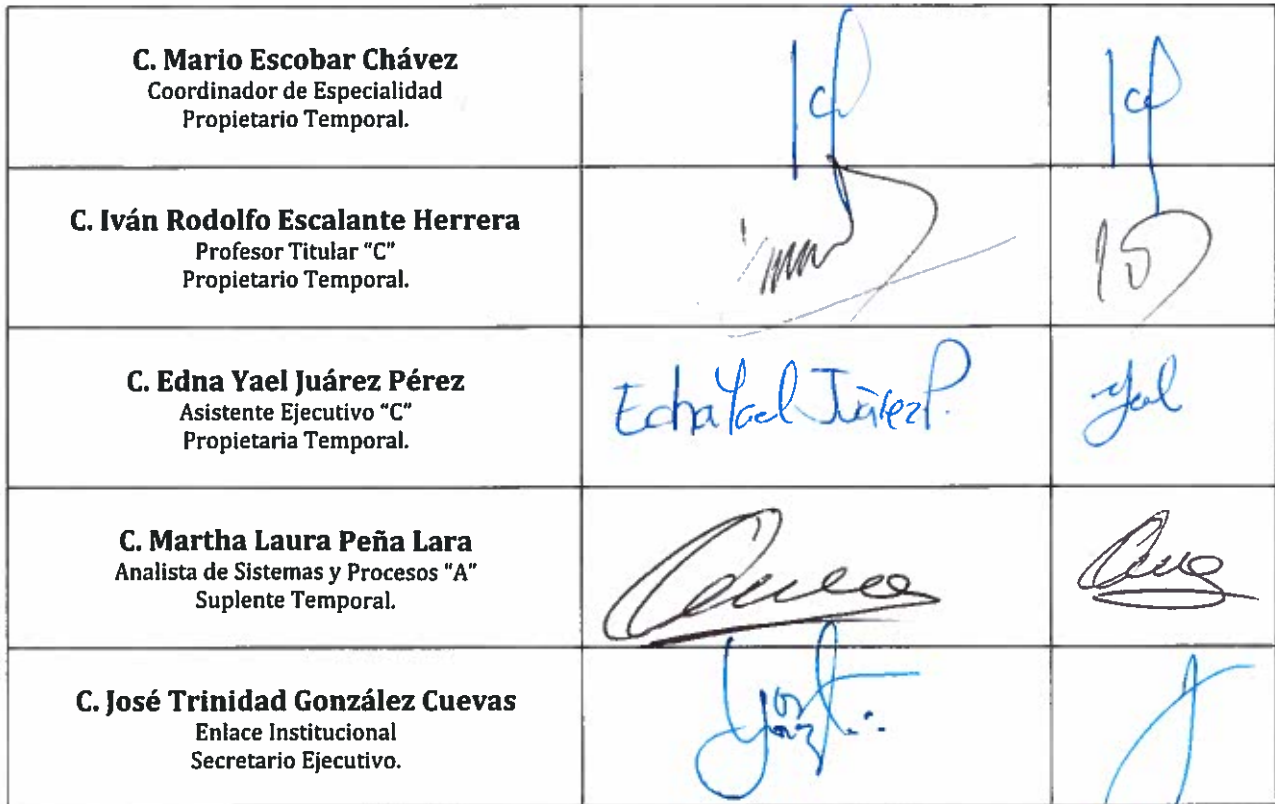 C. Mario Escobar Chávez
Coordinador de Especialidad
Propietario Temporal.
C. Iván Rodolfo Escalante Herrera
Profesor Titular "C"
Propietario Temporal.
C. Edna Yael Juárez Pérez
Asistente Ejecutivo "C"
Propietaria Temporal.
Edna Yael Juárez P.
Yael
C. Martha Laura Peña Lara
Analista de Sistemas y Procesos "A"
Suplente Temporal.
C. José Trinidad González Cuevas
Enlace Institucional
Secretario Ejecutivo.